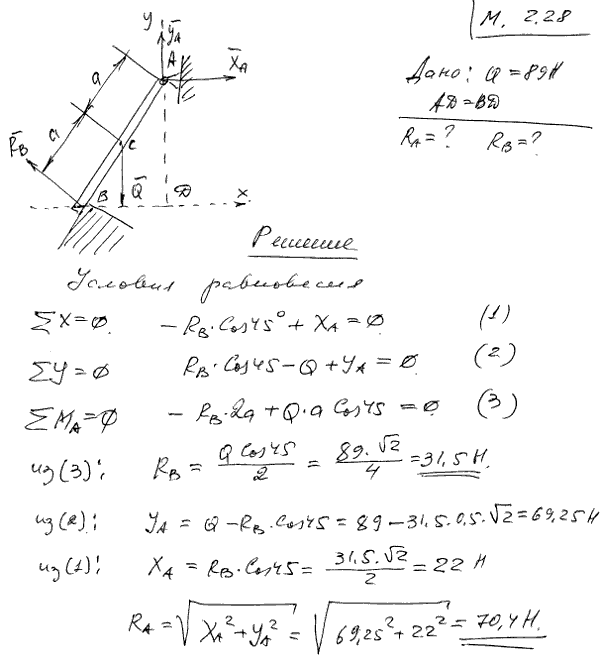 М. 2.28
Дано: Q = 89Н
AD = BD
R_A = ? R_B = ?
y
Y̅_A
A
X̅_A
a
a
C
R̅_B
B
Q̅
D
x
Решение
Условия равновесия
∑X = 0. -R_B·Cos45° + X_A = 0. (1)
∑Y = 0 R_B·Cos45 - Q + Y_A = 0. (2)
∑M_A = 0 -R_B·2a + Q·a Cos45 = 0. (3)
из(3): R_B = Q Cos45 / 2 = 89·√2 / 4 = 31,5 Н.
из(2): Y_A = Q - R_B·Cos45 = 89 - 31,5·0,5·√2 = 69,25 Н
из(1): X_A = R_B·Cos45 = 31,5·√2 / 2 = 22 Н
R_A = √(X_A² + Y_A²) = √(69,25² + 22²) = 70,4 Н.